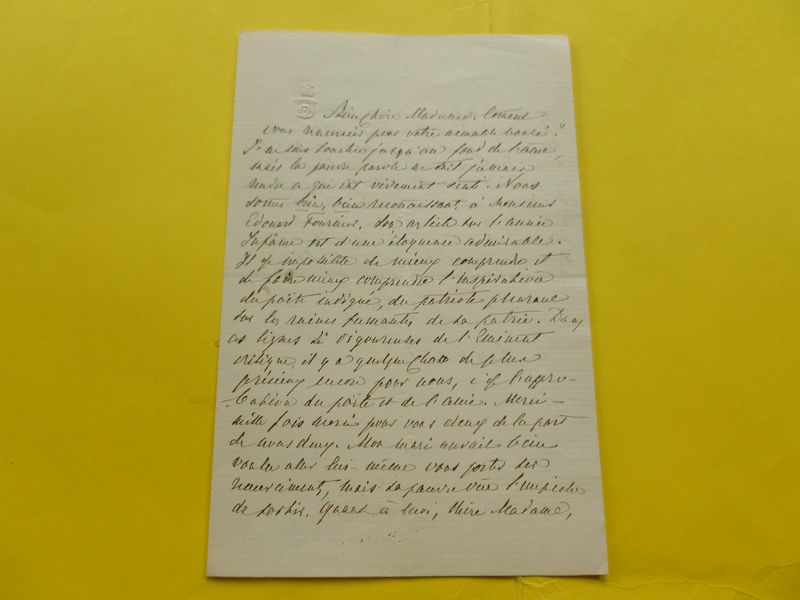 Bien chère Madame, Coment
vous remercier pour votre aimable bonté?
Je me sens touchée jusqu'au fond de l'âme,
mais la pauvre parole ne sait jamais
rendre ce qui est vivement senti. Nous
somes bien, bien reconaissants à Monsieur
Edouard Fournier. Son article sur l'année
Infâme est d'une éloquence admirable.
Il est impossible de mieux comprendre et
de faire mieux comprendre l'inspiration
du poète indigné, du patriote pleurant
sur les ruines fumantes de sa patrie. Dans
ces lignes si vigoureuses de l'éminent
critique, il y a quelque chose de plus
précieux encore pour nous, c'est l'appré-
-ciation du poète et de l'amie. Merci
mille fois merci pour vous deux de la part
de nous deux. Mon mari aurait bien
voulu aler lui-même vous porter ses
remerciments, mais sa pauvre vue l'empêche
de sortir. Quant à moi, chère Madame,